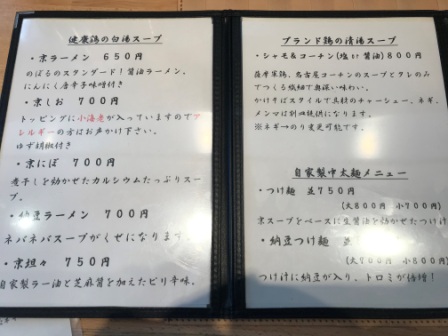 健康鶏の白湯スープ
・京ラーメン 650円
のぼるのスタンダード!醤油ラーメン。
にんにく唐辛子味噌付き
・京しお 700円
トッピングに小海老が入っていますのでア
レルギーの方はお声かけ下さい。
ゆず胡椒付き
・京にぼ 700円
煮干しを効かせたカルシウムたっぷりスー
プ。
・納豆ラーメン 700円
ネバネバスープがくせになります。
・京坦々 750円
自家製ラー油と芝麻醤を加えたピリ辛味。
ブランド鶏の清湯スープ
・シャモ&コーチン(塩or醤油)800円
薩摩軍鶏、名古屋コーチンのスープとタレのみ
でつくる繊細で奥深い味わい。
かけそばスタイルで具材のチャーシュー、ネギ、
メンマは別皿提供になります。
※ネギのり変更可能です。
自家製中太麺メニュー
・つけ麺 並750円
(大800円 小700円)
京スープをベースに生醤油を効かせたつけ汁
・納豆つけ麺 並
(大900円 小800円)
つけ汁に納豆が入り、トロミが倍増!